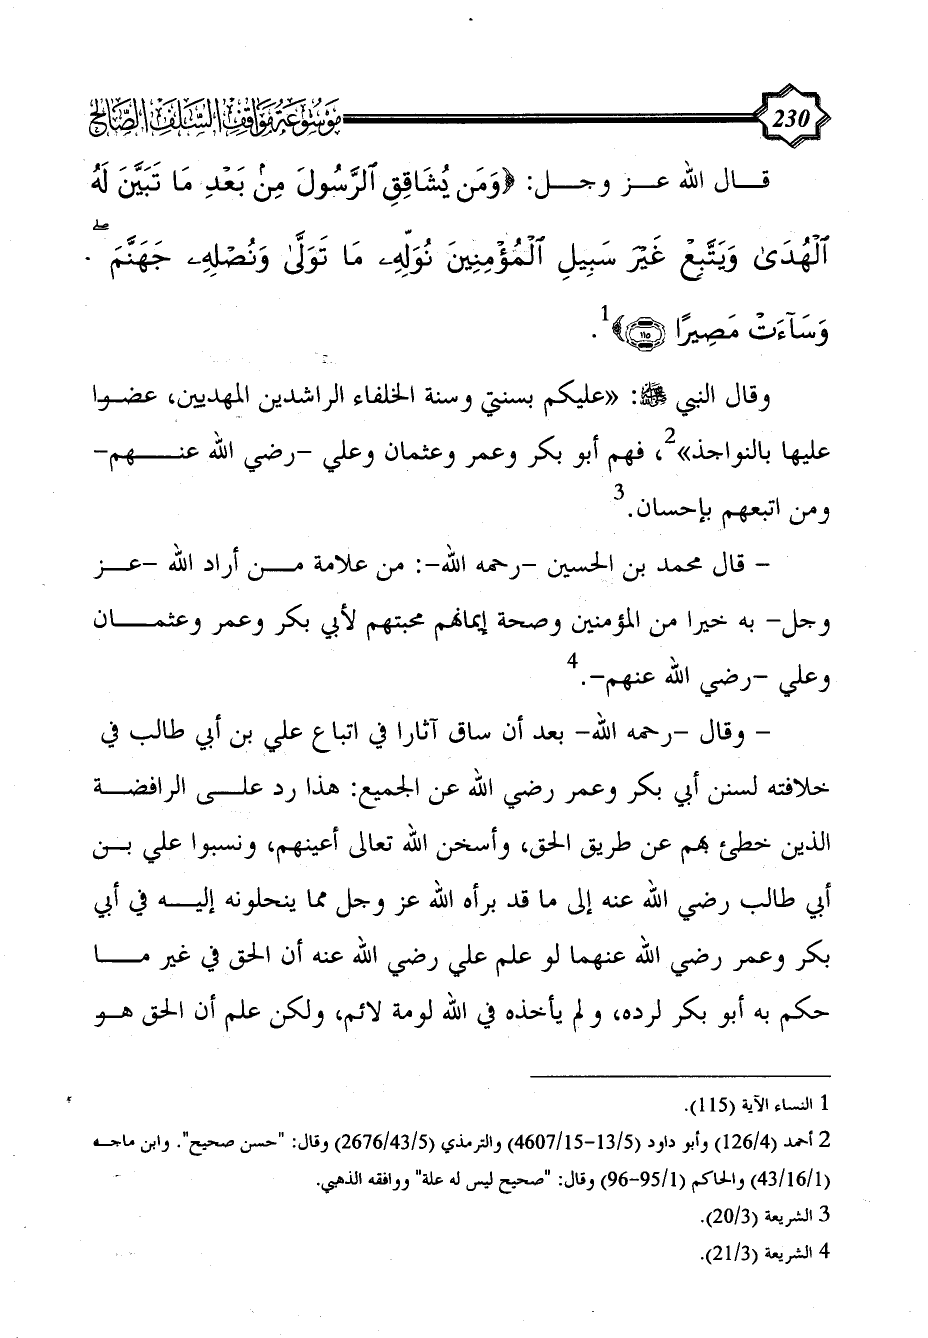 230 موسوعة مواقف السلف الصالح
قال الله عز وجل: ﴿وَمَن يُشَاقِقِ ٱلرَّسُولَ مِنۢ بَعْدِ مَا تَبَيَّنَ لَهُ
ٱلْهُدَىٰ وَيَتَّبِعْ غَيْرَ سَبِيلِ ٱلْمُؤْمِنِينَ نُوَلِّهِۦ مَا تَوَلَّىٰ وَنُصْلِهِۦ جَهَنَّمَ ۖ
وَسَآءَتْ مَصِيرًا ١١٥﴾1.
وقال النبي ﷺ: «عليكم بسنتي وسنة الخلفاء الراشدين المهديين، عضوا
عليها بالنواجذ»2، فهم أبو بكر وعمر وعثمان وعلي -رضي الله عنهم-
ومن اتبعهم بإحسان.3
- قال محمد بن الحسين -رحمه الله-: من علامة من أراد الله -عز
وجل- به خيرا من المؤمنين وصحة إيمانهم محبتهم لأبي بكر وعمر وعثمان
وعلي -رضي الله عنهم-.4
- وقال -رحمه الله- بعد أن ساق آثارا في اتباع علي بن أبي طالب في
خلافته لسنن أبي بكر وعمر رضي الله عن الجميع: هذا رد على الرافضة
الذين خطئ بهم عن طريق الحق، وأسخن الله تعالى أعينهم، ونسبوا علي بن
أبي طالب رضي الله عنه إلى ما قد برأه الله عز وجل مما ينحلونه إليه في أبي
بكر وعمر رضي الله عنهما لو علم علي رضي الله عنه أن الحق في غير ما
حكم به أبو بكر لرده، ولم يأخذه في الله لومة لائم، ولكن علم أن الحق هو
1 النساء الآية (115).
2 أحمد (126/4) وأبو داود (4607/15-13/5) والترمذي (2676/43/5) وقال: "حسن صحيح". وابن ماجه
(43/16/1) والحاكم (96-95/1) وقال: "صحيح ليس له علة" ووافقه الذهبي.
3 الشريعة (20/3).
4 الشريعة (21/3).